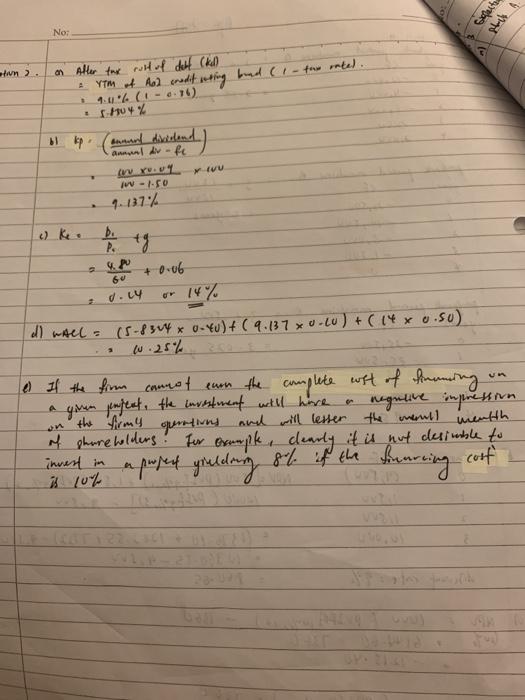 No:
a) After tax cost of debt (kd)
= YTM of Aa2 credit rating bond (1 - tax rate).
= 9.11% (1 - 0.36)
= 5.8304%
b) kp = (annual dividend / annual div - Fc)
= 100 x 0.09 / 100 - 1.50 x 100
= 9.137%
c) Ke = D1 / P0 + g
= 4.80 / 60 + 0.06
= 0.14 or 14%
d) WACC = (5.8304 x 0.40) + (9.137 x 0.10) + (14 x 0.50)
= 10.25%
e) If the firm cannot earn the complete cost of financing on
a given project, the investment will have a negative impression
on the firm's operations and will lesser the overall wealth
of shareholders. For example, clearly it is not desirable to
invest in a project yielding 8% if the financing cost
is 10%